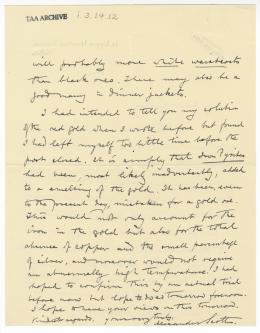 TAA ARCHIVE
1.3.14.12
will probably more white waistcoats
than black ones. There may also be a
good many in dinner jackets.
I had intended to tell you my solution
of the red gold when I wrote before but found
I had left myself too little time before the
post closed. It is simply that Iron Pyrites
had been, most likely inadvertently, added
to a smelting of the gold. It has been, even
to the present day, mistaken for a gold ore.
This would not only account for the
iron in the gold but also for the total
absence of copper and the small percentage
of silver, and moreover would not require
an abnormally high temperature. I had
hoped to confirm this by an actual trial
before now but hope to do so tomorrow forenoon.
I hope to have your views on this tomorrow.
Kindest regards, yours very truly,
Alexander Scott